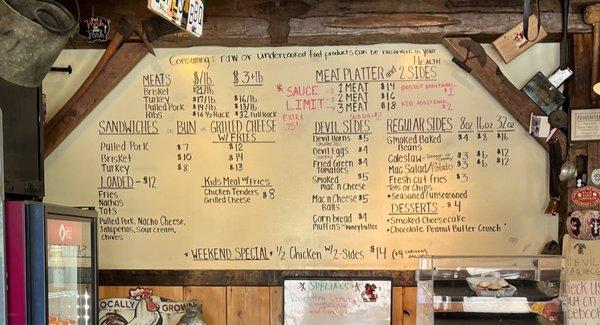 Consuming: raw or undercooked food products can be hazardous to your
Health
MEATS $/lb. $3+lb
Brisket $21/lb.
Turkey $17/lb. $16/lb.
Pulled Pork $14/lb. $13/lb.
Ribs $16 ½ Rack $32 Full Rack
SANDWICHES on BUN or GRILLED CHEESE
W/FRIES
Pulled Pork $7 $12
Brisket $10 $14
Turkey $8 $13
LOADED - $12
Fries
Nachos
Tots
Pulled Pork, Nacho Cheese,
Jalapeños, Sour cream,
chives
Kids Meal w/Fries
Chicken Tenders $8
Grilled Cheese
MEAT PLATTER and 2 SIDES
*SAUCE
LIMIT
EXTRA
.75¢
1 MEAT $14
2 MEAT $16
3 MEAT $18
SUB RIB +$2
BRISKET ADDITIONAL $1
RIB ADDITIONAL $2
DEVIL SIDES
Devil Horns $5
Devil Eggs $4
Fried Green $4
Tomatoes
Smoked $5
Mac n Cheese
Mac n Cheese $5
Balls
Corn bread $4
Muffins w/Honeybutter
REGULAR SIDES 8oz 16oz 32oz
Smoked Baked $4 $8 $16
Beans
Coleslaw $3 $6 $12
Mac Salad/Potato $3 $6 $12
Fresh cut fries $3
Tots or Chips
*Seasoned/unseasoned
DESSERTS - $4
*Smoked Cheesecake
*Chocolate Peanut Butter Crunch
*WEEKEND SPECIAL* ½ Chicken w/2-Sides $14
SPECIALS
LOCALLY GROWN